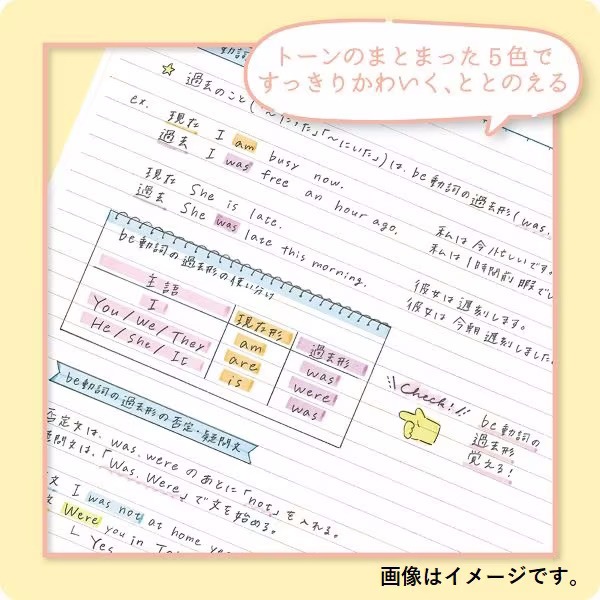 トーンのまとまった5色で
すっきりかわいく、ととのえる
動詞
過去のこと(「〜だった」「〜にいた」)は、be動詞の過去形(was,
ex.
現在 I am busy now.
過去 I was free an hour ago.
私は今忙しいです。
私は1時間前暇でし
現在 She is late.
過去 She was late this morning.
彼女は遅刻します。
彼女は今朝遅刻しました。
be動詞の過去形の使い分け
主語
現在形
過去形
I
am
was
You/We/They
are
were
He/She/It
is
was
Check!!
be動詞の
過去形
覚える!
be動詞の過去形の否定・疑問文
否定文は、was, were のあとに「not」を入れる。
疑問文は、「Was, Were」で文を始める。
文 I was not at home ye
文 Were you in To
└ Yes
画像はイメージです。